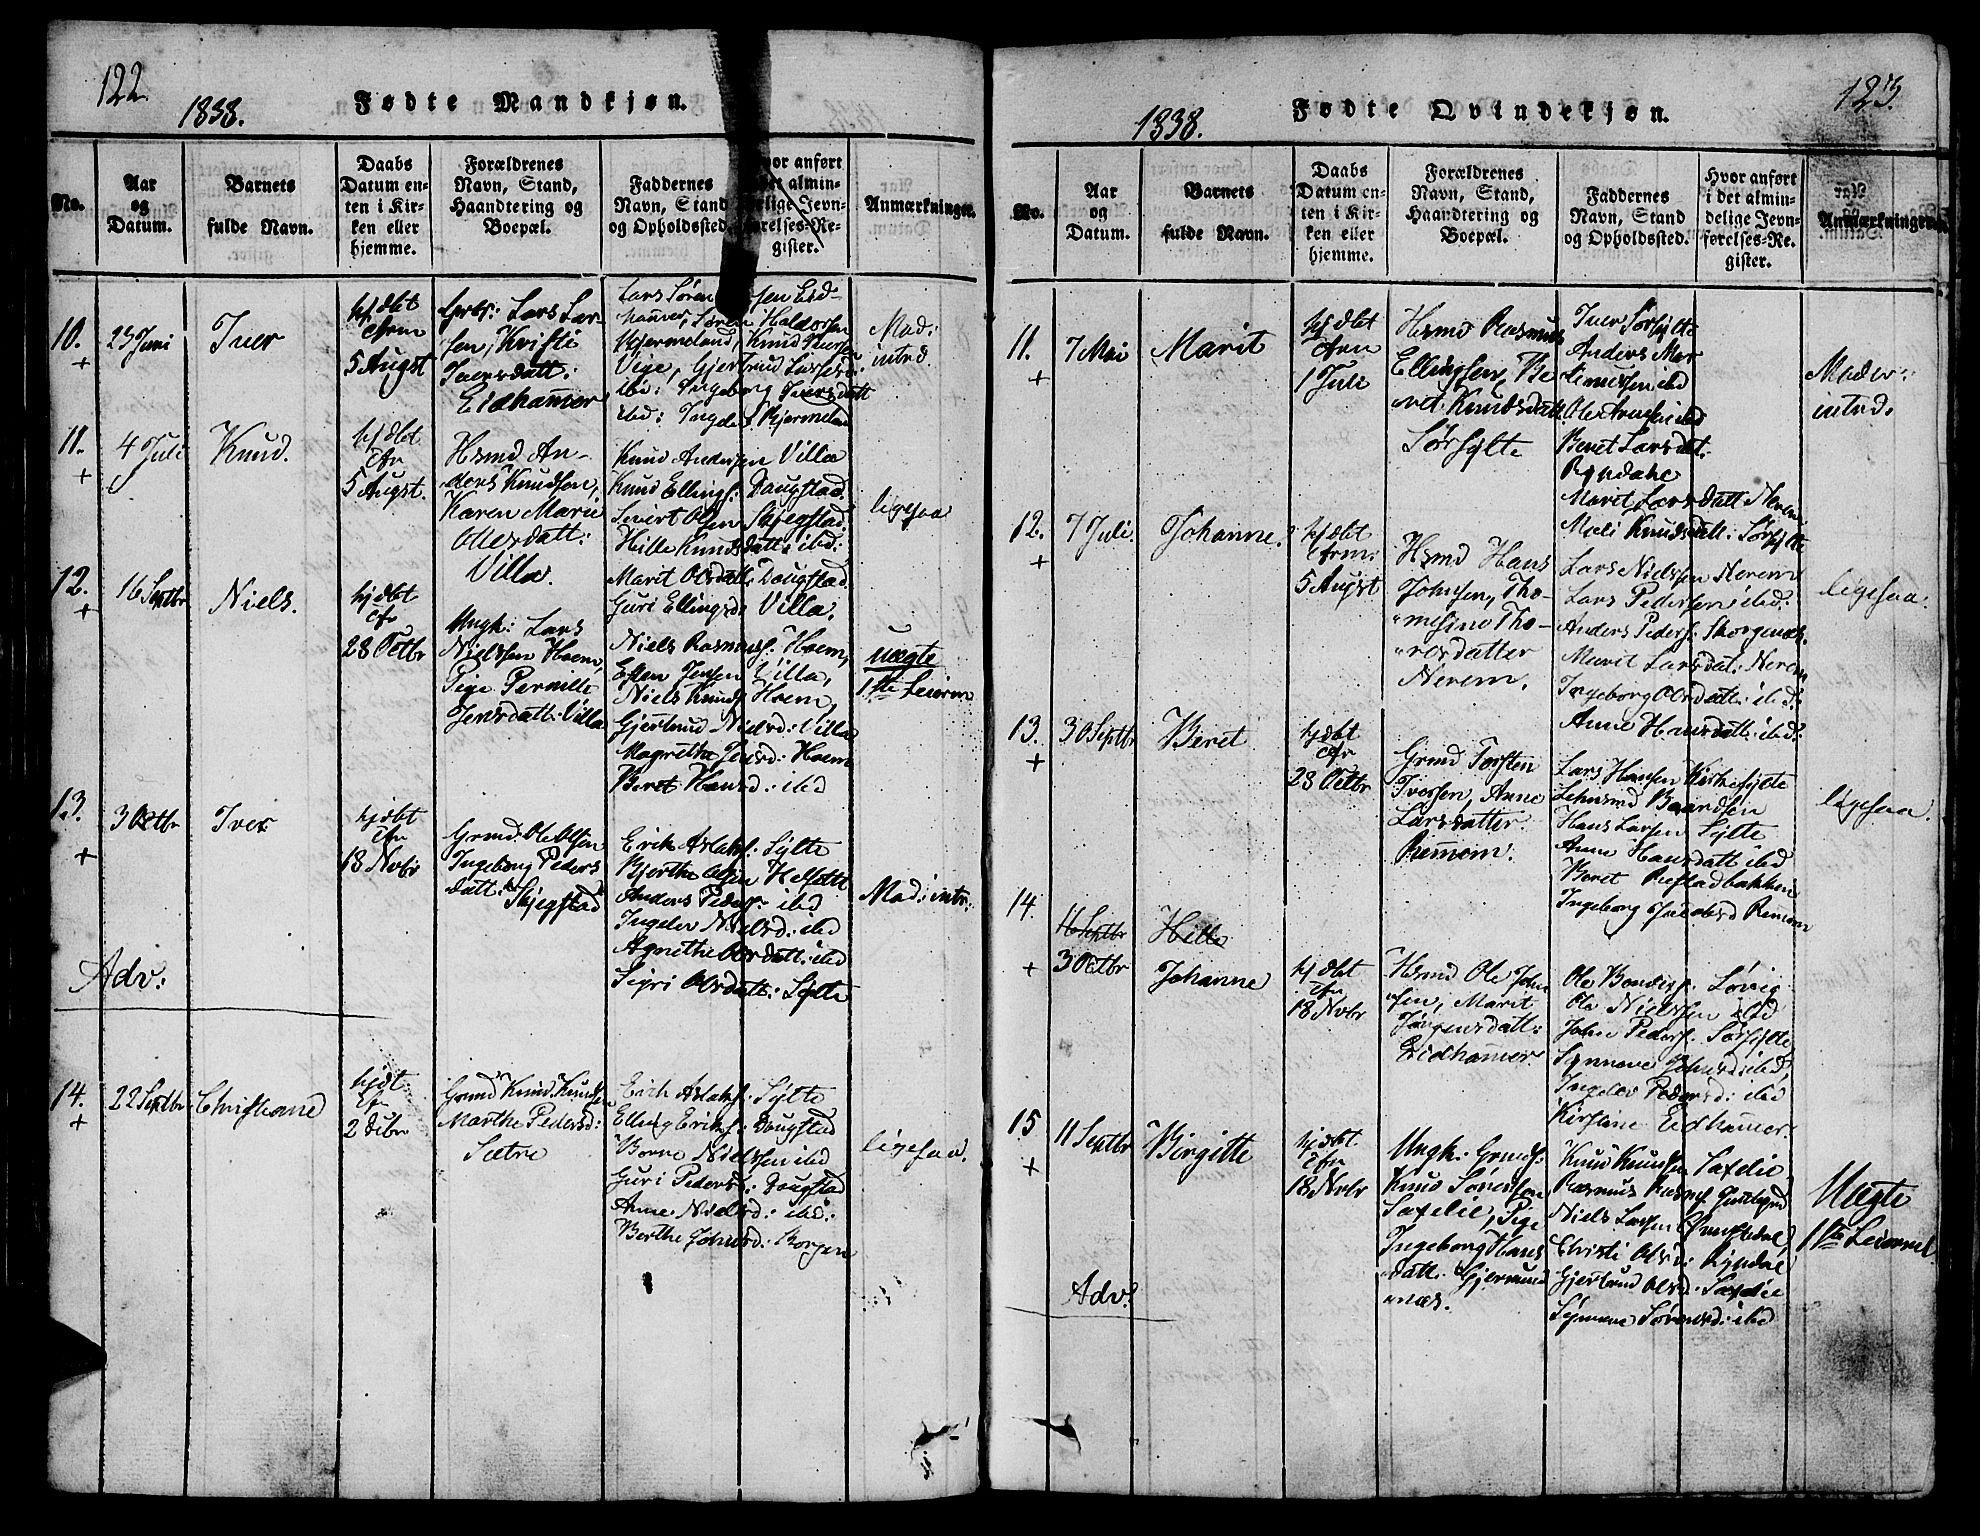 122.
1838.
Fødte Mandkjøn.
No.
Aar
og
Datum.
Barnets
fulde Navn.
Daabs
Datum en-
ten i Kir-
ken eller
hjemme.
Forældrenes
Navn, Stand,
Haandtering og
Boepæl.
Faddernes
Navn, Stand
og Opholdssted.
Hvor anført
i det almin-
delige Jevn-
førelses-Re-
gister.
Anmærkninger.
10.
+
23 Juni
Iver
hjdbt
Cfrm
5 Augst
Grbs: Lars Lar-
sen, Kristi
Iversdatt:
Eidhamer
Lars Sørensen Eid-
hamer, Søren Haldorsen
Bjermeland, Knud Iversen
Vige, Gjertrud Larsd:
ibd: Ingeborg Iversdatt
ibd: Ingder Bjermeland
Mod:
intrd.
11.
+
4 Juli
Knud.
hjdbt
Cfr
5 Augst.
Hsmd An-
ders Knudsen,
Karen Marie
Olles datt:
Villa.
Knud Andersen Villa
Knud Ellings: Daugstad.
Sivert Olsen Skjegstad.
Hille Knudsdatt: ibd:
Marit Olsdatt: Daugstad.
Guri Ellingsd: Villa.
ligesaa
12.
+
16 Septbr
Niels.
hjdbt
Cfr
28 Octbr
Ungk: Lars
Nielssen Hoem,
Pige Pernille
Jensdatt: Villa
Niels Rasmuss: Hoem,
Esten Jensen Villa,
Niels Knuds: Hoem,
Gjertrud Nielsd: Villa
Magrethe Jensd: Hoem
Beret Hansd: ibd
uægte
1ste Leierm
13.
+
3 Octbr
Iver
hjdbt
Cfr
18 Novbr
Grmd: Ole Olsen
Ingeborg Peders
datt: Skjegstad
Erik Aslaks: Sylte
Bjorthe Olsen Helsett
Anders Peders: ibd
Ingeler Nielsd: ibd
Agnethe Olsdatt: ibd
Sigri Olsdatt: Sylte
Mod: intr:
Adv:
14.
+
22 Septbr
Christiane
hjdt
Cfr
2 Dcbr
Grmd Knud Knudsen
Marthe Pedersd:
Sætre
Erich Aslaks: Sylte
Elling Eriks: Daugstad
Borre Nielssen ibd
Guri Pedersd: Daugstad
Anne Nielsd: ibd:
Berthe Johnsd: Skorgen
ligesaa.
123.
1838.
Fødte Qvindekjøn.
No.
Aar
og
Datum.
Barnets
fulde Navn.
Daabs
Datum en-
ten i Kir-
ken eller
hjemme.
Forældrenes
Navn, Stand,
Haandtering og
Boepæl.
Faddernes
Navn, Stand
og Opholdssted.
Hvor anført
i det almin-
delige Jevn-
førelses-Re-
gister.
Anmærkninger.
11.
+
7 Mai
Marit
hjdbt
Cfrm
1 Juli
Hsmd Rasmus
Ellingsen, Be
ret Knudsdatt
Sørsylte
Iver Sørsylte
Anders Mor
tinussen ibd
Ole Arnesen ibd
Beret Larsdat:
Ryndahl
Marit Larsdatt Nerem
Moli Knudsdatt: Sørsylte
Moder:
intrd.
12.
+
7 Juli
Johanne.
hjdbt
Cfrm:
5 Augst
Hsmd Hans
Johnsen, Tho-
mesine Tho-
resdatter
Nerem.
Lars Nielssen Nerem
Lars Pedersen ibd:
Anders Peders: Skorgenæs.
Marit Larsdat: Nerem
Ingeborg Olsdatt: ibd:
Anne Hansdatt: ibd:
ligesaa.
13.
+
30 Septbr
Beret
hjdbt
Cfr
28 Octbr
Grmd Torsten
Iversen, Anne
Larsdatter
Remem.
Lars Hansen Kirkesylte
Lehnsmd Baardsen
Hans Larsen Sylte
Anne Hansdatt ibd
Beret Restadbakken
Ingeborg Jacobsd Remem
ligesaa.
14.
+
11 Septbr
3 Octbr
Hille
Johanne
hjdbt
Cfr
18 Novbr
Hsmd Ole John
sen, Marit
Jørgensdatt:
Eidhamer
Ole Bardss: Løvig
Ole Nielssen ibd
John Peders: Sørsylte
Synnøve Johnsd: ibd,
Ingeler Pedersd: ibd
Kirstine Eidhamer.
15
+
11 Septbr
Birgitte
hjdbt
Cfr
18 Novbr
Ungk: Grmds:
Knud Sørensen
Saxelie, Pige
Ingeborg Hans
datt: Gjermund
næs.
Knud Knudsen Saxelie
Rasmus Rasms:
Niels Larsen
Christi Olsd: Ryndal
Gjertrud Olsd: Saxelie
Synnøve Sørensd: ibd
Uægte
1ste Leiermaal
Adv: